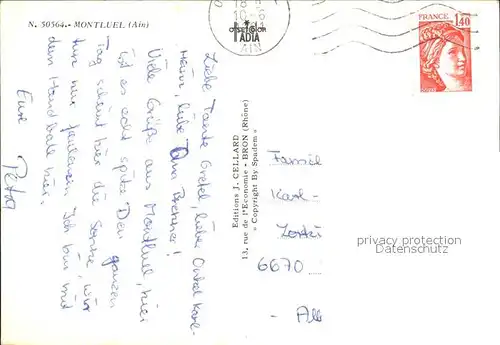 N. 50564. - MONTLUEL (Ain)
FRANCE
1,40
AIN
Liebe Tante Gretel, lieber Onkel Karl-
Heinz, liebe
Viele Grüße aus Montluel, hier
ist es echt spitze Den ganzen
Tag scheint hier die Sonne, wir
tun nur faulenzen Ich bin mit
dem Handball hier.
Eure
Petra
Editions J. CELLARD
13, rue de l'Economie - BRON (Rhône)
« Copyright By Spadem »
Karl-
6670
privacy protection
Datenschutz